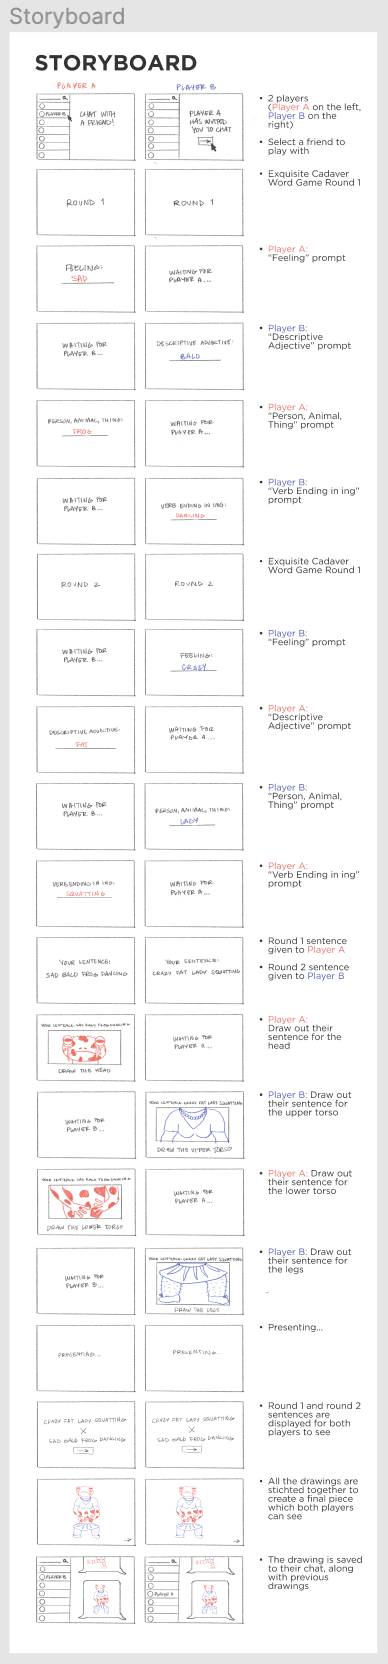 Storyboard
STORYBOARD
PLAYER A
PLAYER B
PLAYER B
CHAT WITH
A FRIEND!
PLAYER A
HAS INVITED
YOU TO CHAT
• 2 players
(Player A on the left,
Player B on the
right)
• Select a friend to
play with
ROUND 1
ROUND 1
• Exquisite Cadaver
Word Game Round 1
FEELING:
SAD
WAITING FOR
PLAYER A...
• Player A:
"Feeling" prompt
WAITING FOR
PLAYER B...
DESCRIPTIVE ADJECTIVE:
BALD
• Player B:
"Descriptive
Adjective" prompt
PERSON, ANIMAL, THING:
FROG
WAITING FOR
PLAYER A...
• Player A:
"Person, Animal,
Thing" prompt
WAITING FOR
PLAYER B...
VERB ENDING IN ING:
DANCING
• Player B:
"Verb Ending in ing"
prompt
ROUND 2
ROUND 2
• Exquisite Cadaver
Word Game Round 1
WAITING FOR
PLAYER B...
FEELING:
CRAZY
• Player B:
"Feeling" prompt
DESCRIPTIVE ADJECTIVE:
FAT
WAITING FOR
PLAYER A...
• Player A:
"Descriptive
Adjective" prompt
WAITING FOR
PLAYER B...
PERSON, ANIMAL, THING:
LADY
• Player B:
"Person, Animal,
Thing" prompt
VERB ENDING IN ING:
SQUATTING
WAITING FOR
PLAYER A...
• Player A:
"Verb Ending in ing"
prompt
YOUR SENTENCE:
SAD BALD FROG DANCING
YOUR SENTENCE:
CRAZY FAT LADY SQUATTING
• Round 1 sentence
given to Player A
• Round 2 sentence
given to Player B
YOUR SENTENCE: SAD BALD FROG DANCING
DRAW THE HEAD
WAITING FOR
PLAYER A...
• Player A:
Draw out their
sentence for the
head
WAITING FOR
PLAYER B...
YOUR SENTENCE: CRAZY FAT LADY SQUATTING
DRAW THE UPPER TORSO
• Player B: Draw out
their sentence for
the upper torso
YOUR SENTENCE: SAD BALD FROG DANCING
DRAW THE LOWER TORSO
WAITING FOR
PLAYER A...
• Player A: Draw out
their sentence for
the lower torso
WAITING FOR
PLAYER B...
YOUR SENTENCE: CRAZY FAT LADY SQUATTING
DRAW THE LEGS
• Player B: Draw out
their sentence for
the legs
PRESENTING...
PRESENTING...
• Presenting...
CRAZY FAT LADY SQUATTING
X
SAD BALD FROG DANCING
CRAZY FAT LADY SQUATTING
X
SAD BALD FROG DANCING
• Round 1 and round 2
sentences are
displayed for both
players to see
• All the drawings are
stichted together to
create a final piece
which both players
can see
PLAYER B
PLAYER A
• The drawing is saved
to their chat, along
with previous
drawings